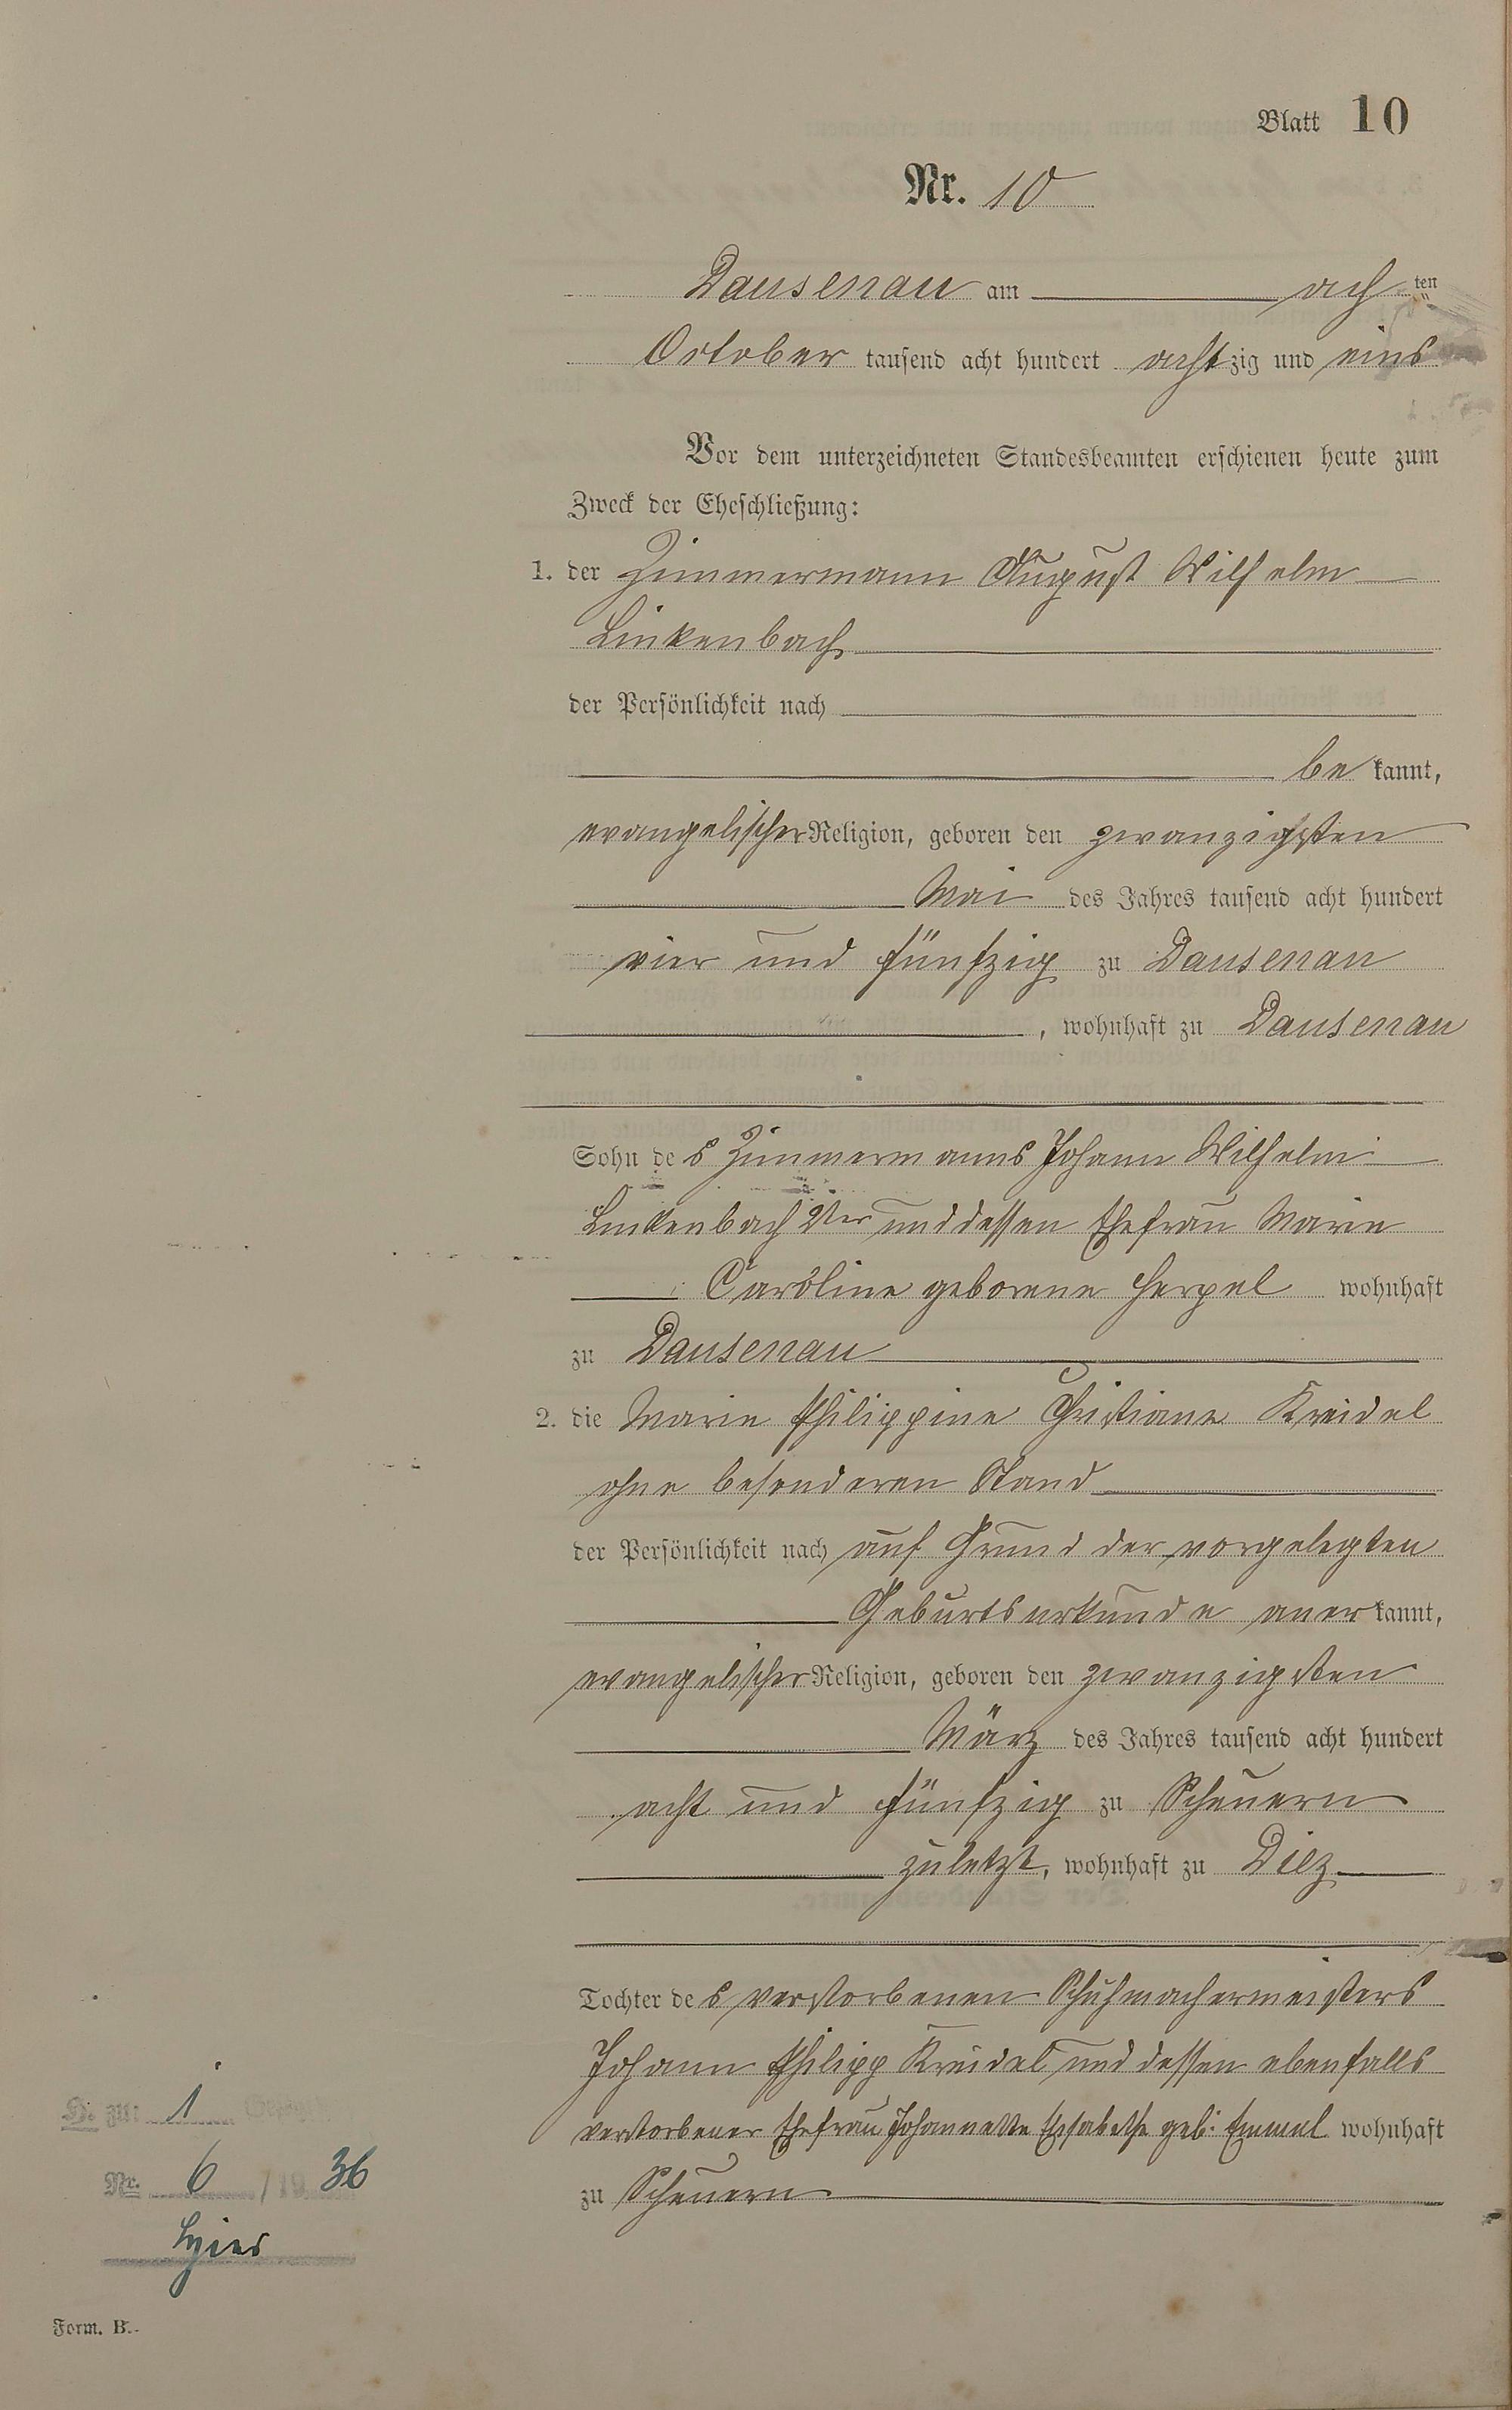 Blatt 10
Nr. 10
Dausenau am ach ten
October tausend acht hundert achtzig und eins
Vor dem unterzeichneten Standesbeamten erschienen heute zum
Zweck der Eheschließung:
1. der Zimmermann August Wilhelm
Linkenbach
der Persönlichkeit nach
be kannt,
evangelischer Religion, geboren den zwanzigsten
Mai des Jahres tausend acht hundert
vier und fünfzig zu Dausenau
, wohnhaft zu Dausenau
Sohn des Zimmermanns Johann Wilhelm
Linkenbach 2ter und dessen Ehefrau Marie
Caroline geborene Herpel wohnhaft
zu Dausenau
2. die Marie Philippine Christiane Kreidel
ohne besonderen Stand
der Persönlichkeit nach auf Grund der vorgelegten
Geburtsurkunde aner kannt,
evangelischer Religion, geboren den zwanzigsten
März des Jahres tausend acht hundert
acht und fünfzig zu Scheuern
zuletzt, wohnhaft zu Diez
Tochter des verstorbenen Schuhmachermeisters
Johann Philipp Kreidel und dessen ebenfalls
verstorbener Ehefrau Johannette Elisabethe geb: Emmel wohnhaft
zu Scheuern
H. zu: 1
Nr. 6 / 19 36
Form. B.